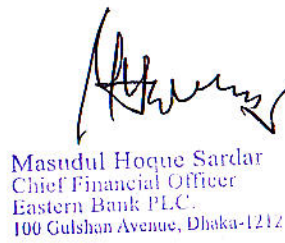 Masudul Hoque Sardar
Chief Financial Officer
Eastern Bank PLC.
100 Gulshan Avenue, Dhaka-1212